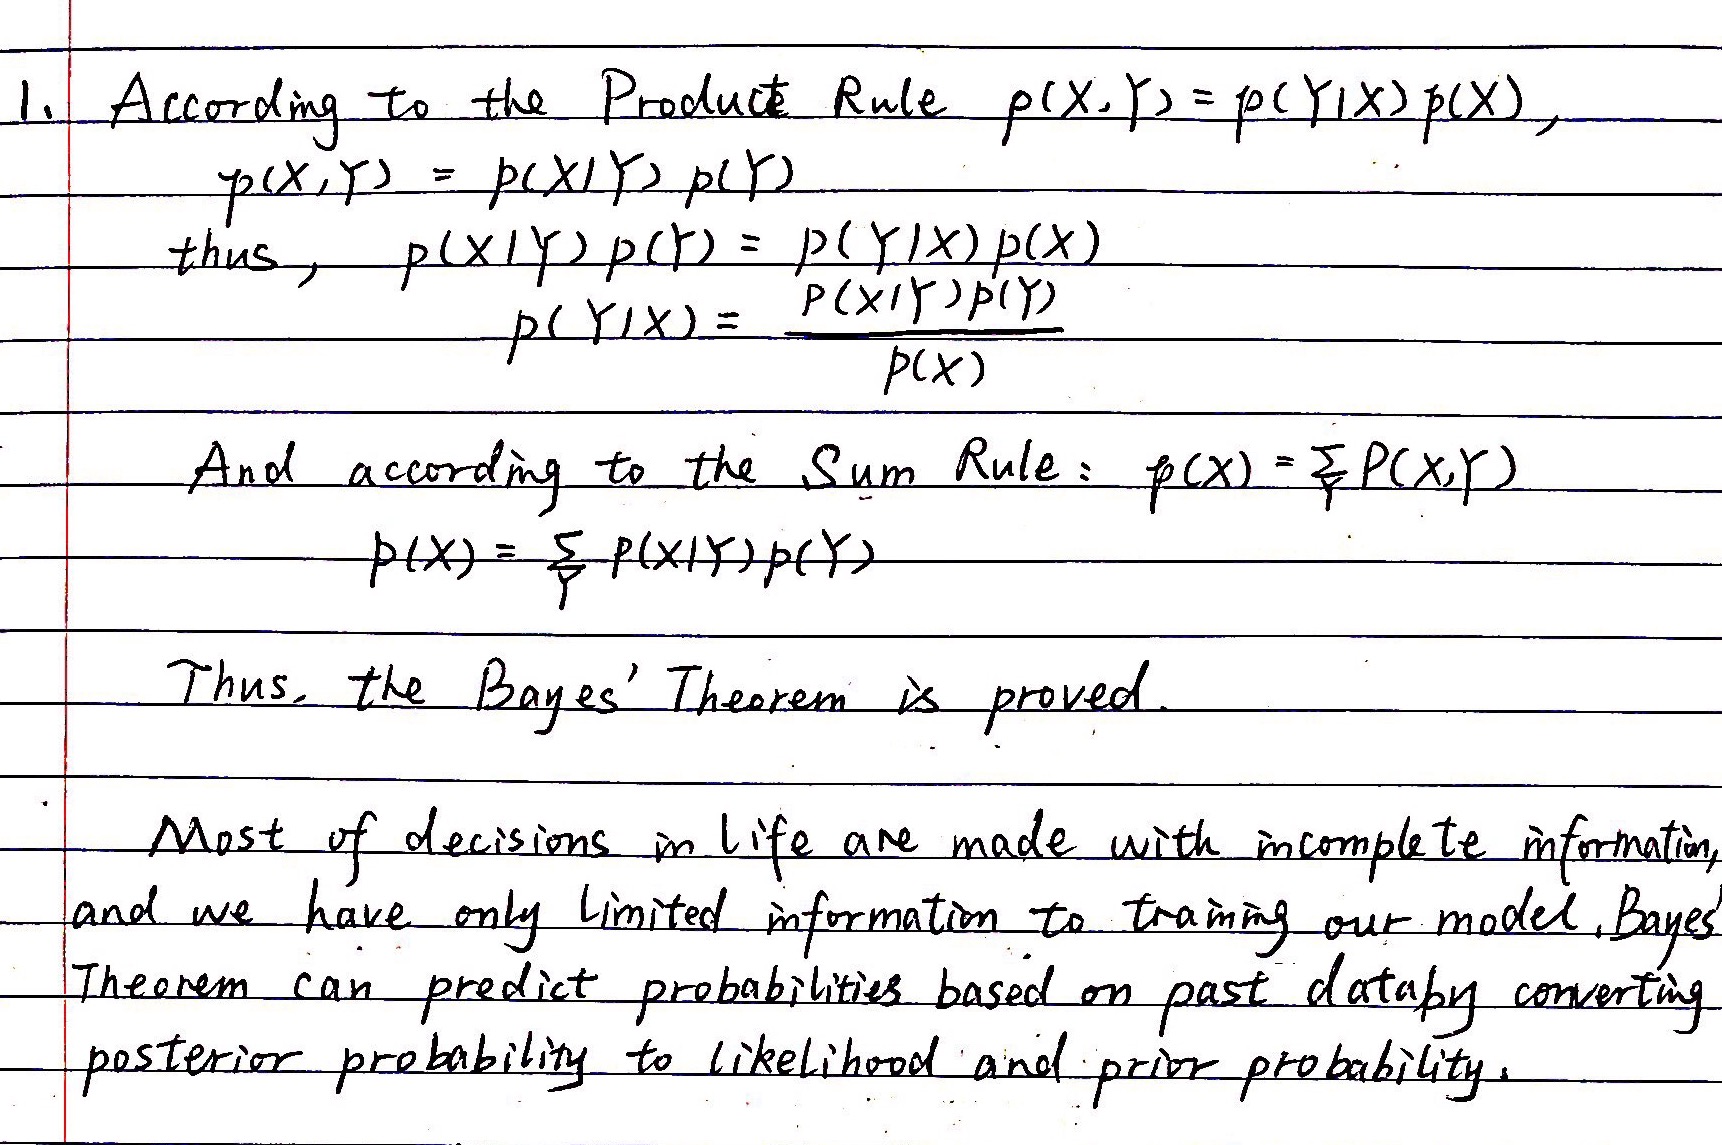 1. According to the Product Rule p(X,Y) = p(Y|X) p(X),
p(X,Y) = p(X|Y) p(Y)
thus, p(X|Y) p(Y) = p(Y|X) p(X)
p(Y|X) = P(X|Y) p(Y) / p(X)
And according to the Sum Rule: p(X) = Σ_Y P(X,Y)
p(X) = Σ_Y P(X|Y) p(Y)
Thus, the Bayes' Theorem is proved.
Most of decisions in life are made with incomplete information,
and we have only limited information to training our model. Bayes'
Theorem can predict probabilities based on past data by converting
posterior probability to likelihood and prior probability.